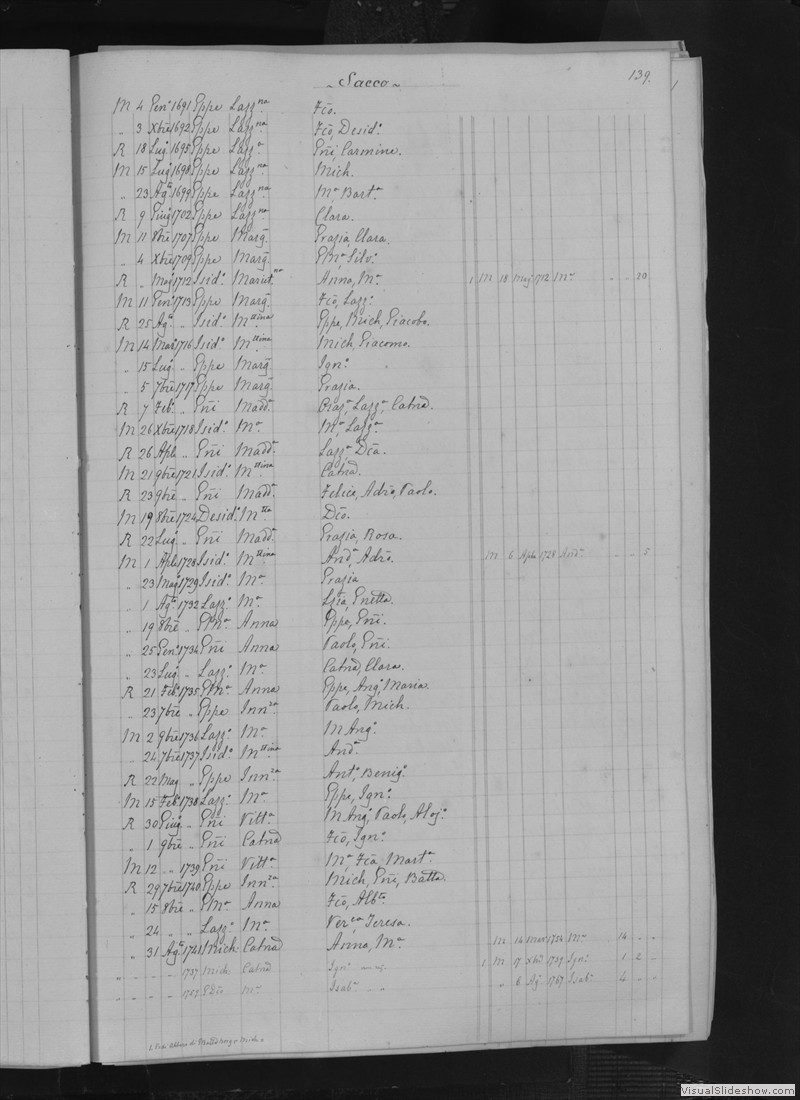 139.
~ Sacco ~
M 4 Gen.º 1691 Gppe Lazz.na Fcō.
„ 3 Xbre 1692 Gppe Lazz.na Fcō, Desid.º
R 18 Lug.º 1695 Gppe Lazz.a Gñi, Carmine.
M 15 Lug.º 1698 Gppe Lazz.na Mich.
„ 23 Ag.to 1699 Gppe Lazz.na M.a Bart.a
R 9 Giug.º 1702 Gppe Lazz.na Clara.
M 11 8bre 1707 Gppe Marg. Grazia, Clara.
„ 4 Xbre 1709 Gppe Marg. GM.a, Silv.º
R „ Mag.º 1712 Isid.º Mariet.na Anna, M.a 1 M 18 Mag.º 1712 M.a „ „ 20
M 11 Gen.º 1713 Gppe Marg. Fcō, Lazz.º
R 25 Ag.to „ Isid.º M.ttina Gppe, Mich, Giacobo.
M 14 Mar.º 1716 Isid.º M.ttina Mich, Giacomo.
„ 15 Lug.º „ Gppe Marg. Ign.º
„ 5 7bre 1717 Gppe Marg. Grazia.
R 7 Feb.º „ Gñi Madd.a Lazz.a, Catnā.
M 26 Xbre 1718 Isid.º M.a M.a, Lazz.a
R 26 Aple „ Gñi Madd.a Lazz.a, Dca.
M 21 9bre 1721 Isid.º M.ttina Catnā.
R 23 9bre „ Gñi Madd.a Felice, Adrō, Paolo.
M 19 8bre 1724 Desid.º M.tta Dcō.
R 22 Lug.º „ Gñi Madd.a Grazia, Rosa.
M 1 Aple 1728 Isid.º M.ttina And.a, Adrō. M 6 Aple 1728 And.a „ „ 5
„ 23 Mag.º 1729 Isid.º M.a Grazia
„ 1 Ag.to 1732 Lazz.º M.a Gnetta.
„ 19 8bre „ GM.a Anna Gppe, Gñi.
„ 25 Gen.º 1734 Gñi Anna Paolo, Gñi.
„ 23 Lug.º „ Lazz.º M.a Catnā, Clara.
R 21 Feb.º 1735 GM.a Anna Gppe, Ang.º, Maria.
„ 23 7bre „ Gppe Inn.za Paolo, Mich.
M 2 9bre 1736 Lazz.º M.a M Ang.º
„ 24 7bre 1737 Isid.º M.ttina And.a
R 22 Mag.º „ Gppe Inn.za Ant.º, Benig.º
M 15 Feb.º 1738 Lazz.º M.a Gppe, Ign.º
R 30 Giug.º „ Gñi Vitt.a M Ang.º, Paolo, Aloj.º
„ 1 9bre „ Gñi Catnā Fcō, Ign.º
M 12 „ 1739 Gñi Vitt.a M.a, Fca, Mart.a
R 29 7bre 1740 Gppe Inn.za Mich, Gñi, Batta.
„ 15 8bre „ GM.a Anna Fcō, Alb.to
„ 24 „ „ Lazz.º M.a Ver.ca, Teresa.
„ 31 Ag.to 1741 Mich. Catnā Anna, M.a M 14 Mar.º 1754 M.a „ 14 „ „
„ „ „ 1757 Mich. Catnā Ign.º 1 M 17 Xbre 1759 Ign.º 1 2 „
„ „ „ 1757 M.a Isab.a „ „ „ 6 Ag.º 1767 Isab.a 4 „ „
VisualSlideshow.com